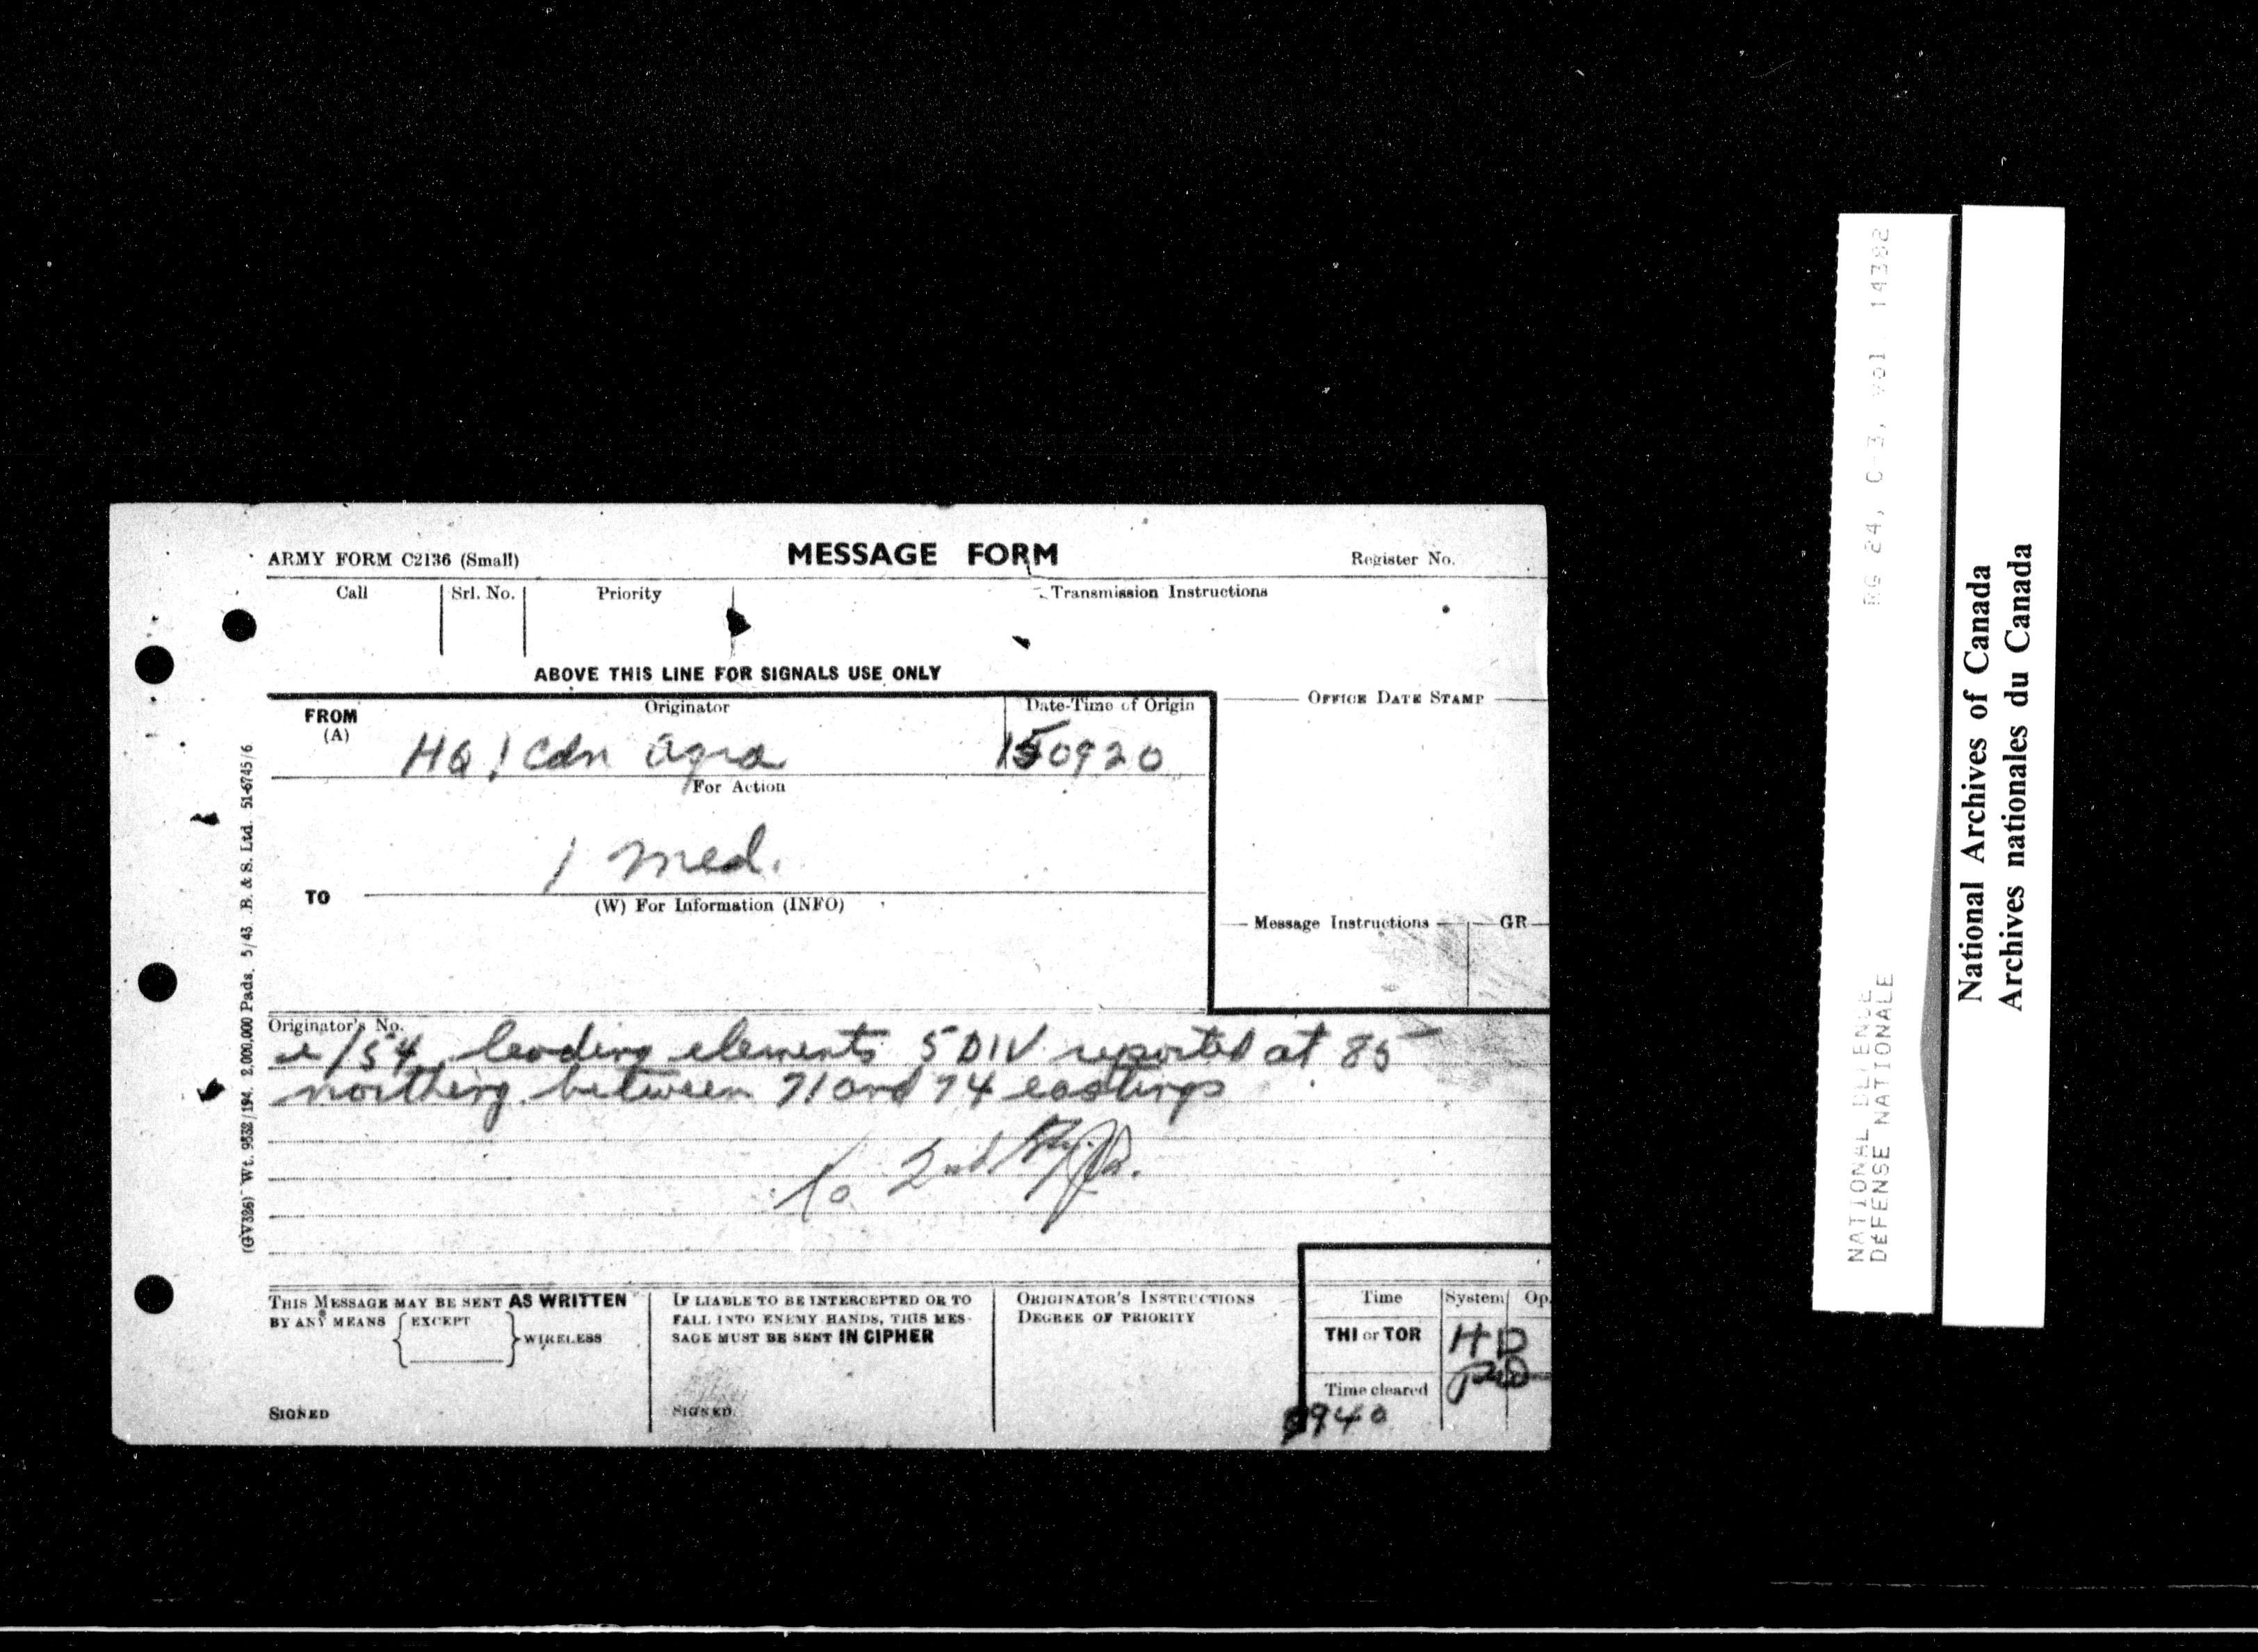 ARMY FORM C2136 (Small) MESSAGE FORM Register No.
Call Srl. No. Priority Transmission Instructions
ABOVE THIS LINE FOR SIGNALS USE ONLY
FROM (A) Originator Date-Time of Origin OFFICE DATE STAMP
HQ 1 Cdn agra 150920
For Action
1 med.
TO
(W) For Information (INFO)
Message Instructions GR
Originator's No.
/54 leading elements 5 DIV reported at 85
northing between 71 and 74 eastings
to 2nd
THIS MESSAGE MAY BE SENT AS WRITTEN
BY ANY MEANS EXCEPT WIRELESS
SIGNED
IF LIABLE TO BE INTERCEPTED OR TO
FALL INTO ENEMY HANDS, THIS MES-
SAGE MUST BE SENT IN CIPHER
SIGNED
ORIGINATOR'S INSTRUCTIONS
DEGREE OF PRIORITY
Time System Op.
THI or TOR HD
Time cleared
0940
(GV326) Wt. 9532/194. 2,000,000 Pads. 5/43 B. & S. Ltd. 51-6745/6
NATIONAL DEFENCE RG 24, C-3, vol. 14382
DÉFENSE NATIONALE
National Archives of Canada
Archives nationales du Canada